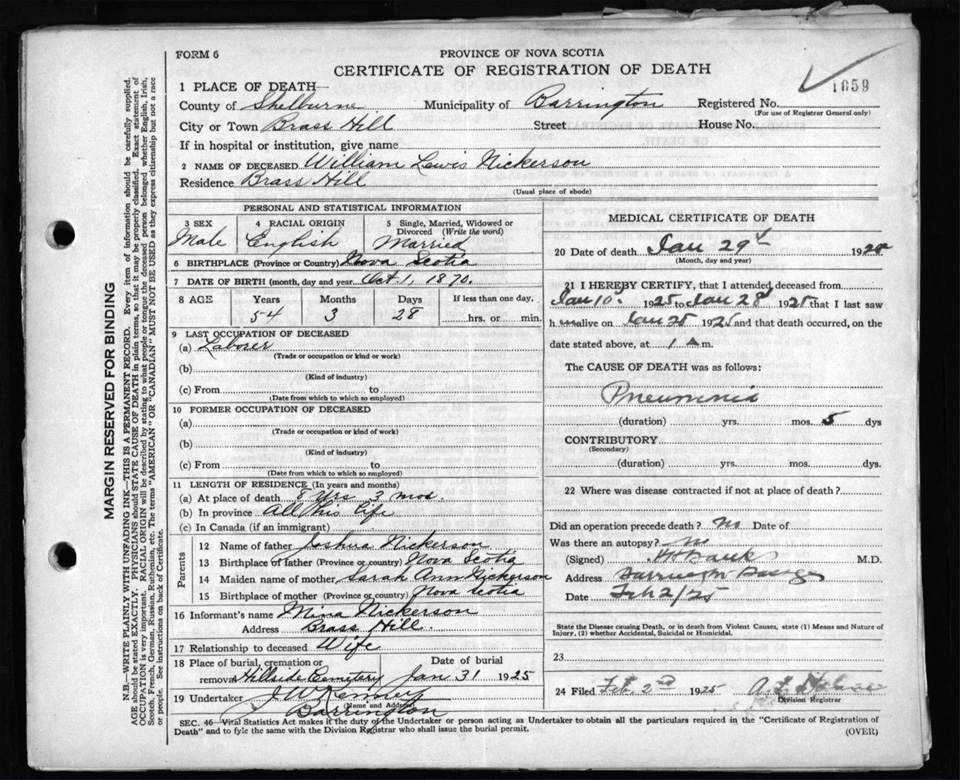 FORM 6
PROVINCE OF NOVA SCOTIA
CERTIFICATE OF REGISTRATION OF DEATH
1 PLACE OF DEATH—
County of Shelburne Municipality of Barrington Registered No. 1059
(For use of Registrar General only)
City or Town Brass Hill Street House No.
If in hospital or institution, give name
2 NAME OF DECEASED William Lewis Nickerson
Residence Brass Hill
(Usual place of abode)
PERSONAL AND STATISTICAL INFORMATION
3 SEX 4 RACIAL ORIGIN 5 Single, Married, Widowed or Divorced (Write the word)
Male English Married
6 BIRTHPLACE (Province or Country) Nova Scotia
7 DATE OF BIRTH (month, day and year) Oct 1, 1870.
8 AGE Years Months Days If less than one day.
54 3 28 hrs. or min.
9 LAST OCCUPATION OF DECEASED
(a) Laborer
(Trade or occupation or kind of work)
(b)
(Kind of industry)
(c) From to
(Date from which to which so employed)
10 FORMER OCCUPATION OF DECEASED
(a)
(Trade or occupation or kind of work)
(b)
(Kind of industry)
(c) From to
(Date from which to which so employed)
11 LENGTH OF RESIDENCE (In years and months)
(a) At place of death 8 Yrs 3 mos.
(b) In province All His Life
(c) In Canada (if an immigrant)
Parents
12 Name of father Joshua Nickerson
13 Birthplace of father (Province or country) Nova Scotia
14 Maiden name of mother Sarah Ann Nickerson
15 Birthplace of mother (Province or country) Nova Scotia
16 Informant's name Mina Nickerson
Address Brass Hill.
17 Relationship to deceased Wife
18 Place of burial, cremation or removal Hillside Cemetery Date of burial Jan 31 1925
19 Undertaker J W
(Name and Address)
Barrington
MEDICAL CERTIFICATE OF DEATH
20 Date of death Jan 29 1925
(Month, day and year)
21 I HEREBY CERTIFY, that I attended deceased from
Jan 10 1925 to Jan 28 1925 that I last saw
h alive on Jan 28 1925 and that death occurred, on the
date stated above, at 1 A m.
The CAUSE OF DEATH was as follows:
Pneumonia
(duration) yrs. mos. 5 dys
CONTRIBUTORY
(Secondary)
(duration) yrs. mos. dys.
22 Where was disease contracted if not at place of death?
Did an operation precede death? no Date of
Was there an autopsy? no
(Signed) M.D.
Address Barrington Passage
Date Feb 2/25
State the Disease causing Death, or in death from Violent Causes, state (1) Means and Nature of
Injury, (2) whether Accidental, Suicidal or Homicidal.
23
24 Filed Feb. 2nd 1925
Division Registrar
SEC. 46—Vital Statistics Act makes it the duty of the Undertaker or person acting as Undertaker to obtain all the particulars required in the "Certificate of Registration of
Death" and to fyle the same with the Division Registrar who shall issue the burial permit. (OVER)
MARGIN RESERVED FOR BINDING
N.B.—WRITE PLAINLY WITH UNFADING INK—THIS IS A PERMANENT RECORD. Every item of information should be carefully supplied.
AGE should be stated EXACTLY. PHYSICIANS should STATE CAUSE OF DEATH in plain terms, so that it may be properly classified. Exact statement of
OCCUPATION is very important. RACIAL ORIGIN will be described by stating to what people or tongue the deceased person belonged, whether English, Irish,
Scotch, French, German, Russian, Ruthenian, etc. The terms "AMERICAN" or "CANADIAN" MUST NOT BE USED as they express citizenship but not a race
or people. See instructions on back of Certificate.